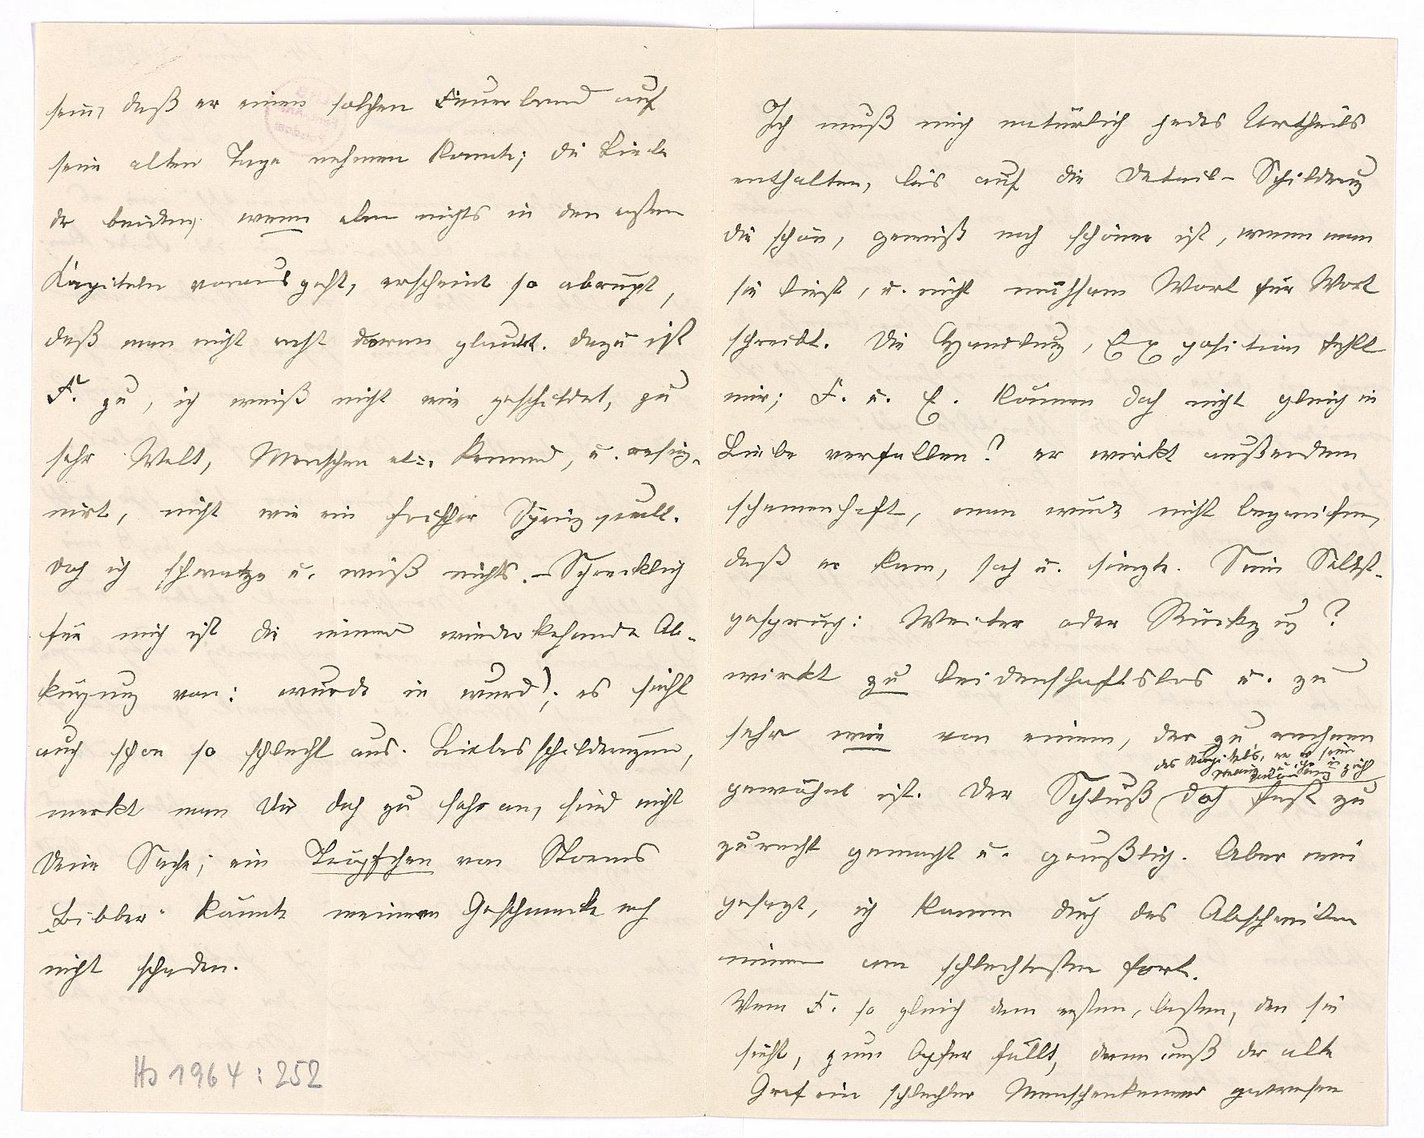 sein, daß er einen solchen Feuerbrand auf
seine alten Tage nehmen konnte; die Liebe
der beiden, wenn eben nichts in den ersten
Kapiteln vorausgeht, erscheint so abrupt,
daß man nicht recht daran glaubt. Dazu ist
F. zu, ich weiß nicht wie geschildet, zu
sehr Welt, Menschen etc. kennend, u. resig-
nirt, nicht wie ein frischer Springquell.
Doch ich schwatze u. weiß nichts. – Schrecklich
für mich ist die immer wiederkehrende Ab-
kürzung von: wurde in wurd'; es sieht
auch schon so schlecht aus. Liebesschilderungen,
merkt man Dir doch zu sehr an, sind nicht
Deine Sache; ein Tröpfchen von Storms
Bibber könnte meinem Geschmacke nach
nicht schaden.
Hs 1964 : 252
Ich muß mich natürlich jedes Urtheils
enthalten, bis auf die Detail-Schilderung
die schön, gewiß noch schöner ist, wenn man
sie liest, u. nicht mühsam Wort für Wort
schreibt. Die Handlung, Exposition fehlt
mir; F. u. E. können doch nicht gleich in
Liebe verfallen? er wirkt außerdem
schemenhaft, man würde nicht begreifen,
daß er kam, sah u. siegte. Sein Selbst-
gespräch: Weiter oder Rückzug?
wirkt zu leidenschaftslos u. zu
sehr wie von einem, der zu rechnen
des Kapitels, wo er sein
gewöhnt ist. Der Schluß (doch fast zu
zurecht gemacht u. graußlig. Aber wie
gesagt, ich komme durch das Abschreiben
immer am schlechtesten fort.
Wenn F. so gleich dem ersten, besten, den sie
sieht, zum Opfer fällt, dann muß der alte
Graf ein schlechter Menschenkenner gewesen